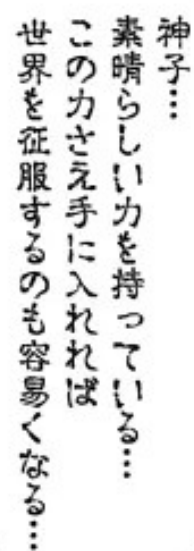 神子…
素晴らしい力を持っている…
この力さえ手に入れれば
世界を征服するのも容易くなる…